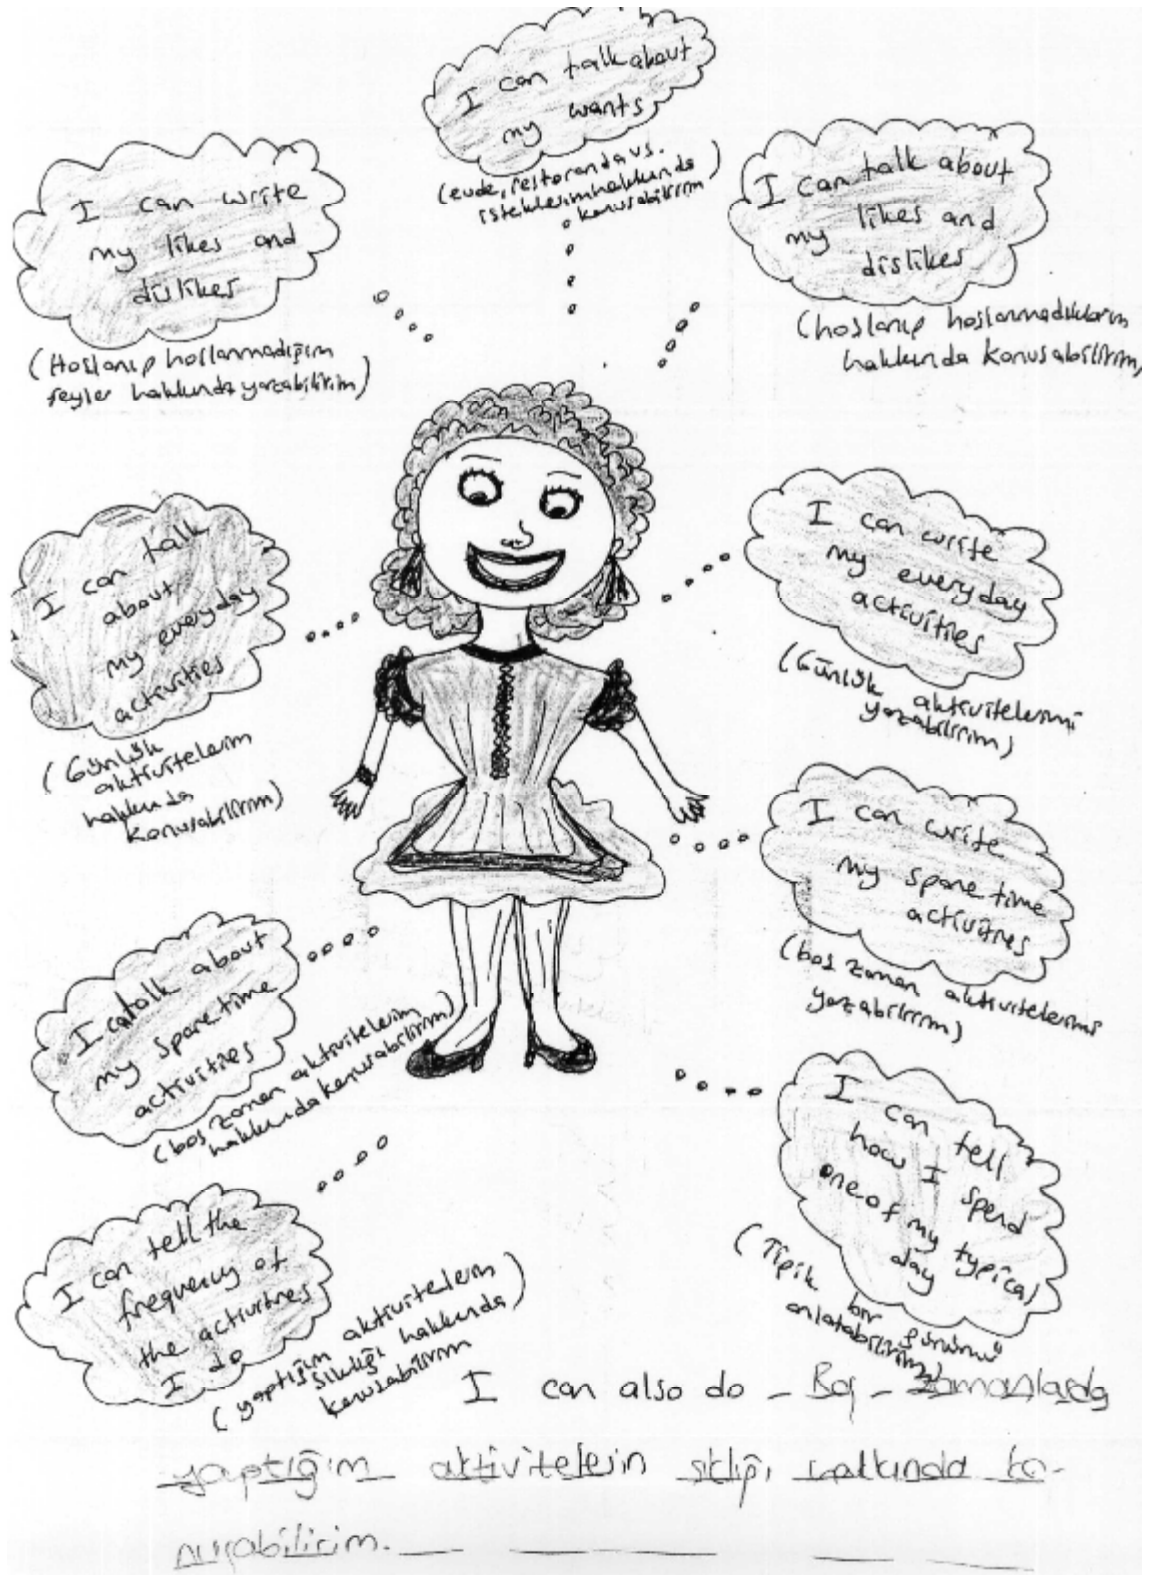 I can talk about
my wants
(evde, restoranda vs.
isteklerim hakkında
konuşabilirim)
I can write
my likes and
dislikes
(Hoşlanıp hoşlanmadığım
şeyler hakkında yazabilirim)
I can talk about
my likes and
dislikes
(hoşlanıp hoşlanmadıklarım
hakkında konuşabilirim)
I can talk
about
my everyday
activities
(Günlük
aktivitelerim
hakkında
konuşabilirim)
I can write
my everyday
activities
(Günlük aktivitelerimi
yazabilirim)
I can write
my spare time
activities
(boş zaman aktivitelerimi
yazabilirim)
I catalk about
my spare time
activities
(boş zaman aktivitelerim
hakkında konuşabilirim)
I can tell the
frequency of
the activities
I do
(yaptığım aktivitelerin
sıklığı hakkında)
konuşabilirim
I can tell
how I spend
one of my typical
day
(Tipik bir günümü
anlatabilirim)
I can also do - Boş - zamanlarda
yaptığım aktivitelerin sıklığı hakkında ko-
nuşabilirim.